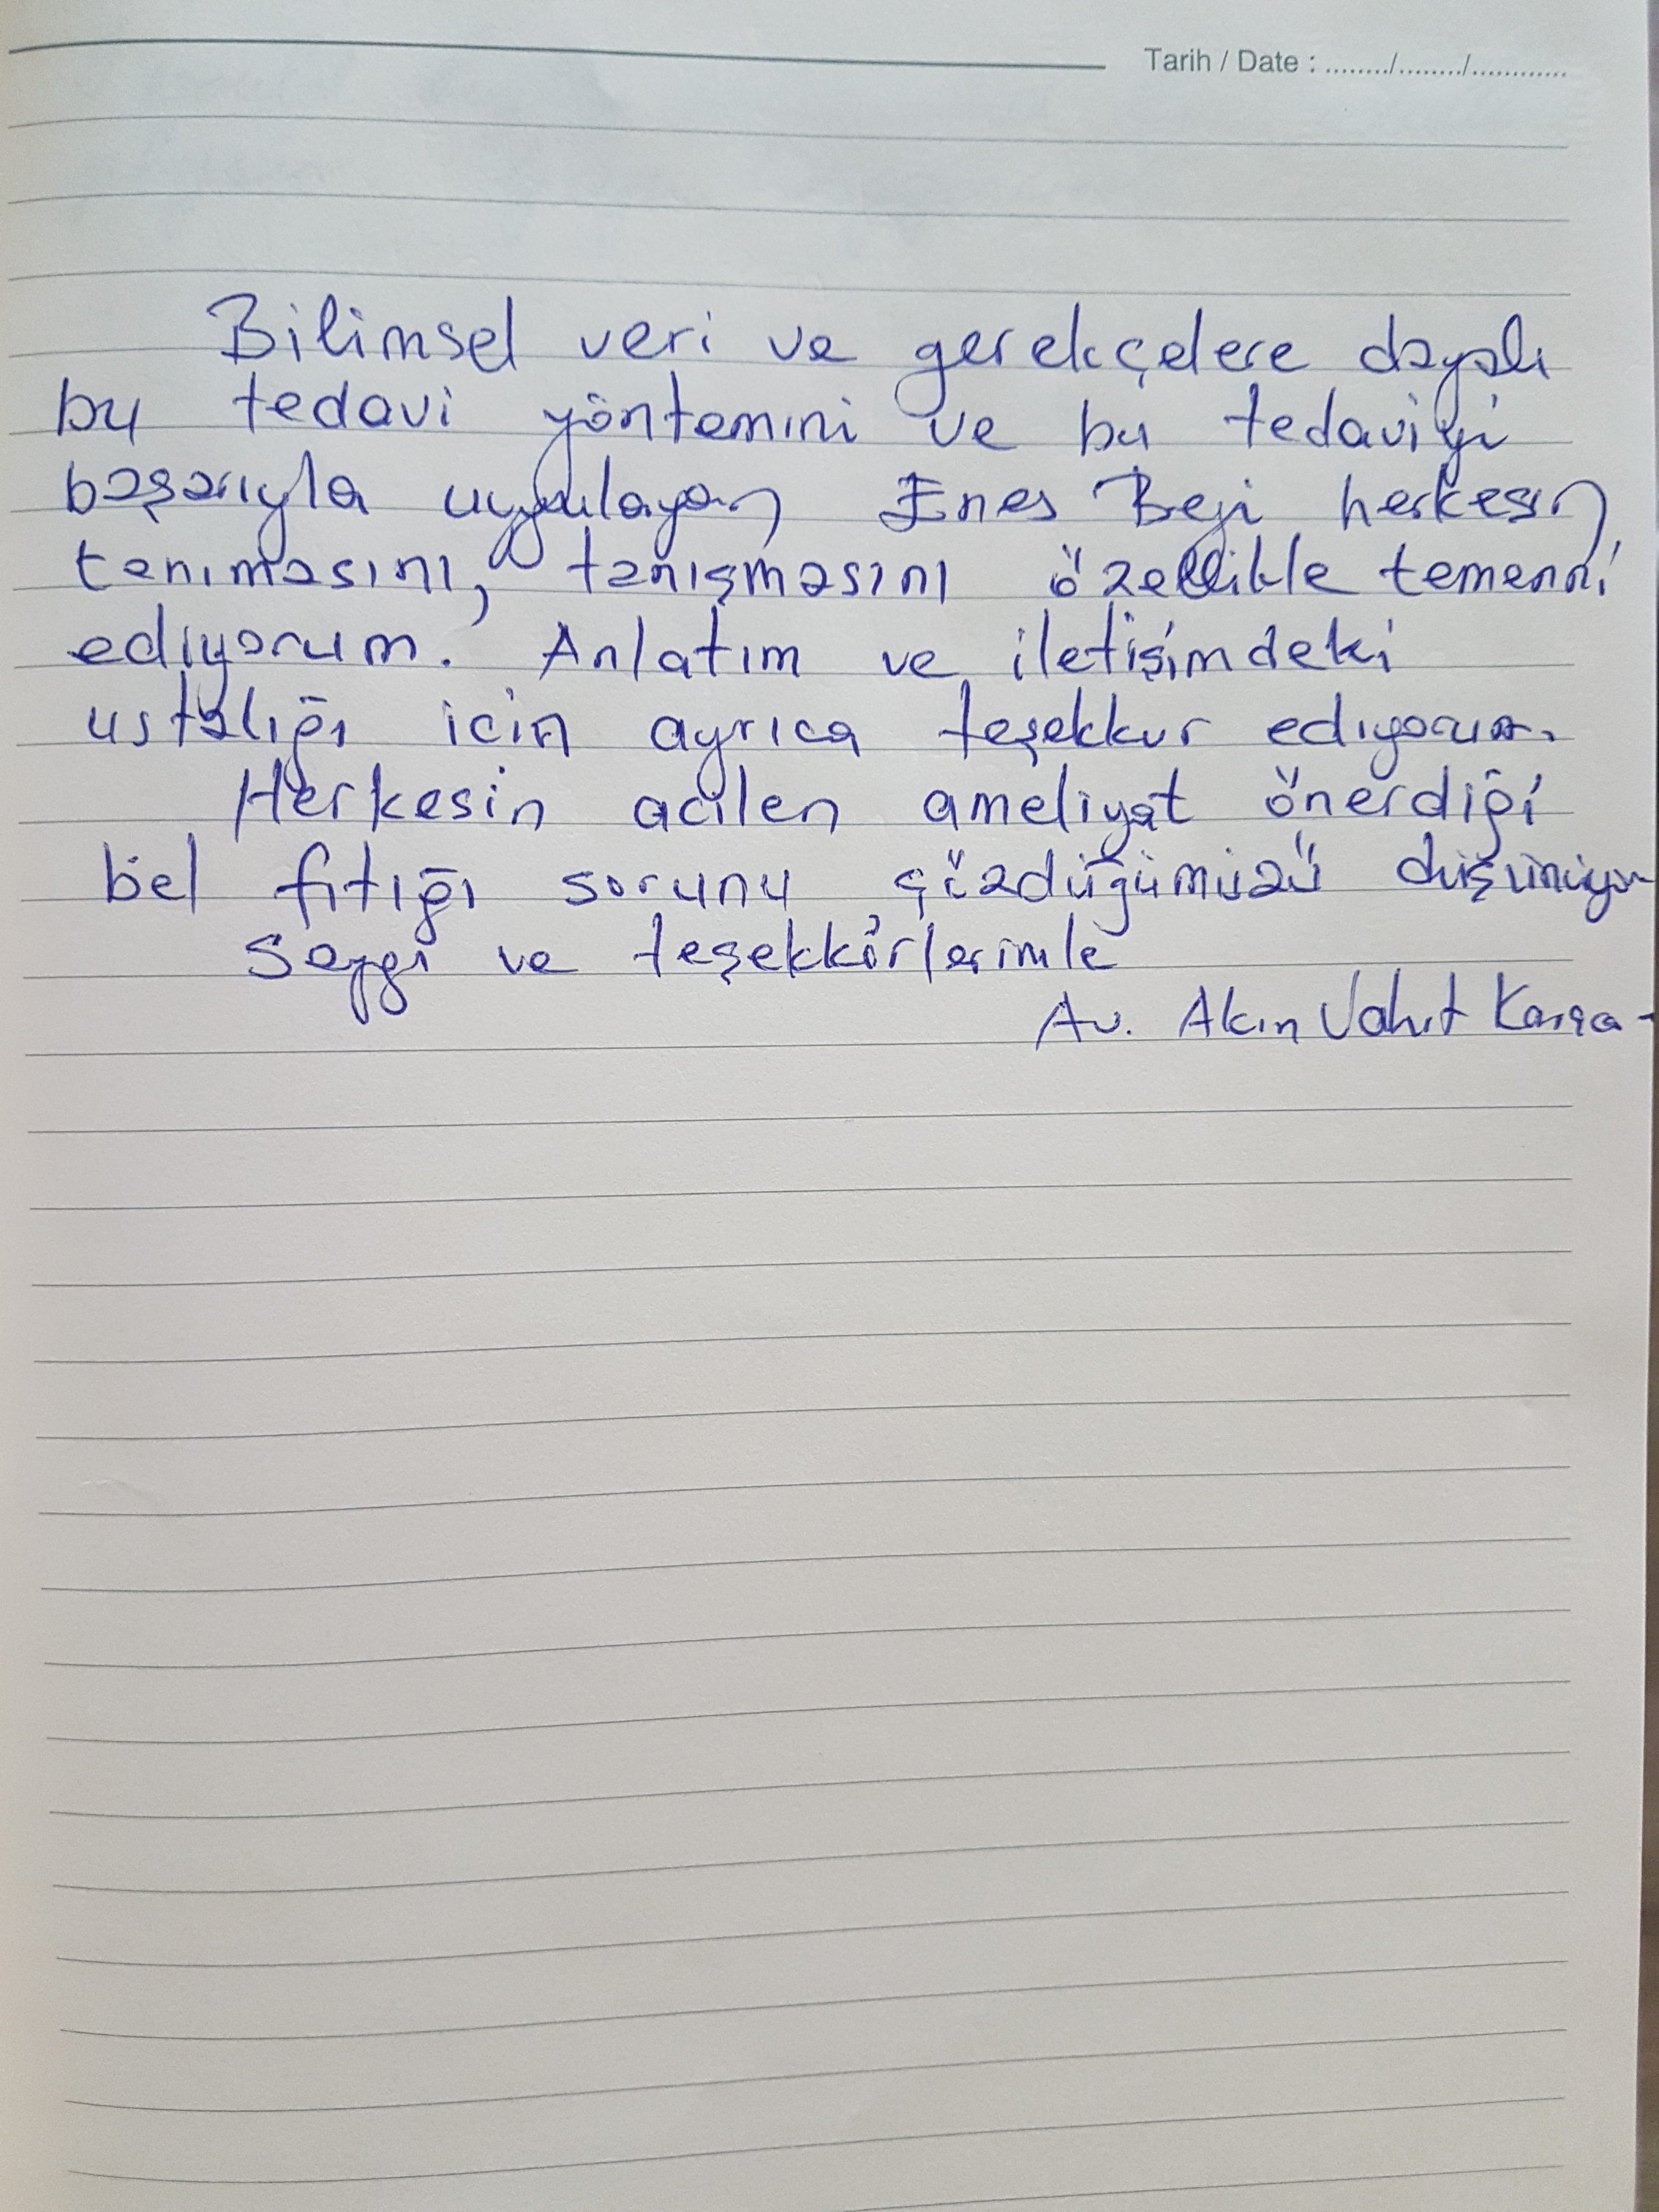 Tarih / Date : ......../......../............
Bilimsel veri ve gerekçelere dayalı
bu tedavi yöntemini ve bu tedaviyi
başarıyla uygulayan Enes Beyi herkesin
tanımasını, tanışmasını özellikle temenni
ediyorum. Anlatım ve iletişimdeki
ustalığı için ayrıca teşekkur ediyorum.
Herkesin acilen ameliyat önerdiği
bel fıtığı sorunu çözdüğümüzü düşünüyor
Saygı ve teşekkürlerimle
Av. Akın Vahit